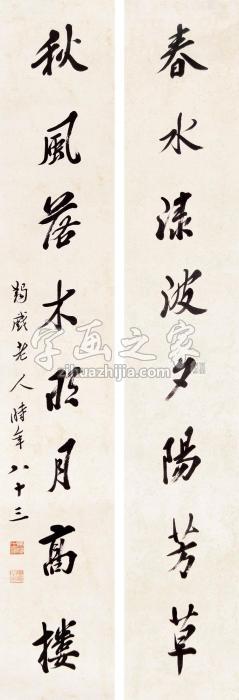 春水渌波夕陽芳草
秋風落木明月高樓
蠲戲老人時年八十三
字画之家
zihuazhijia.com